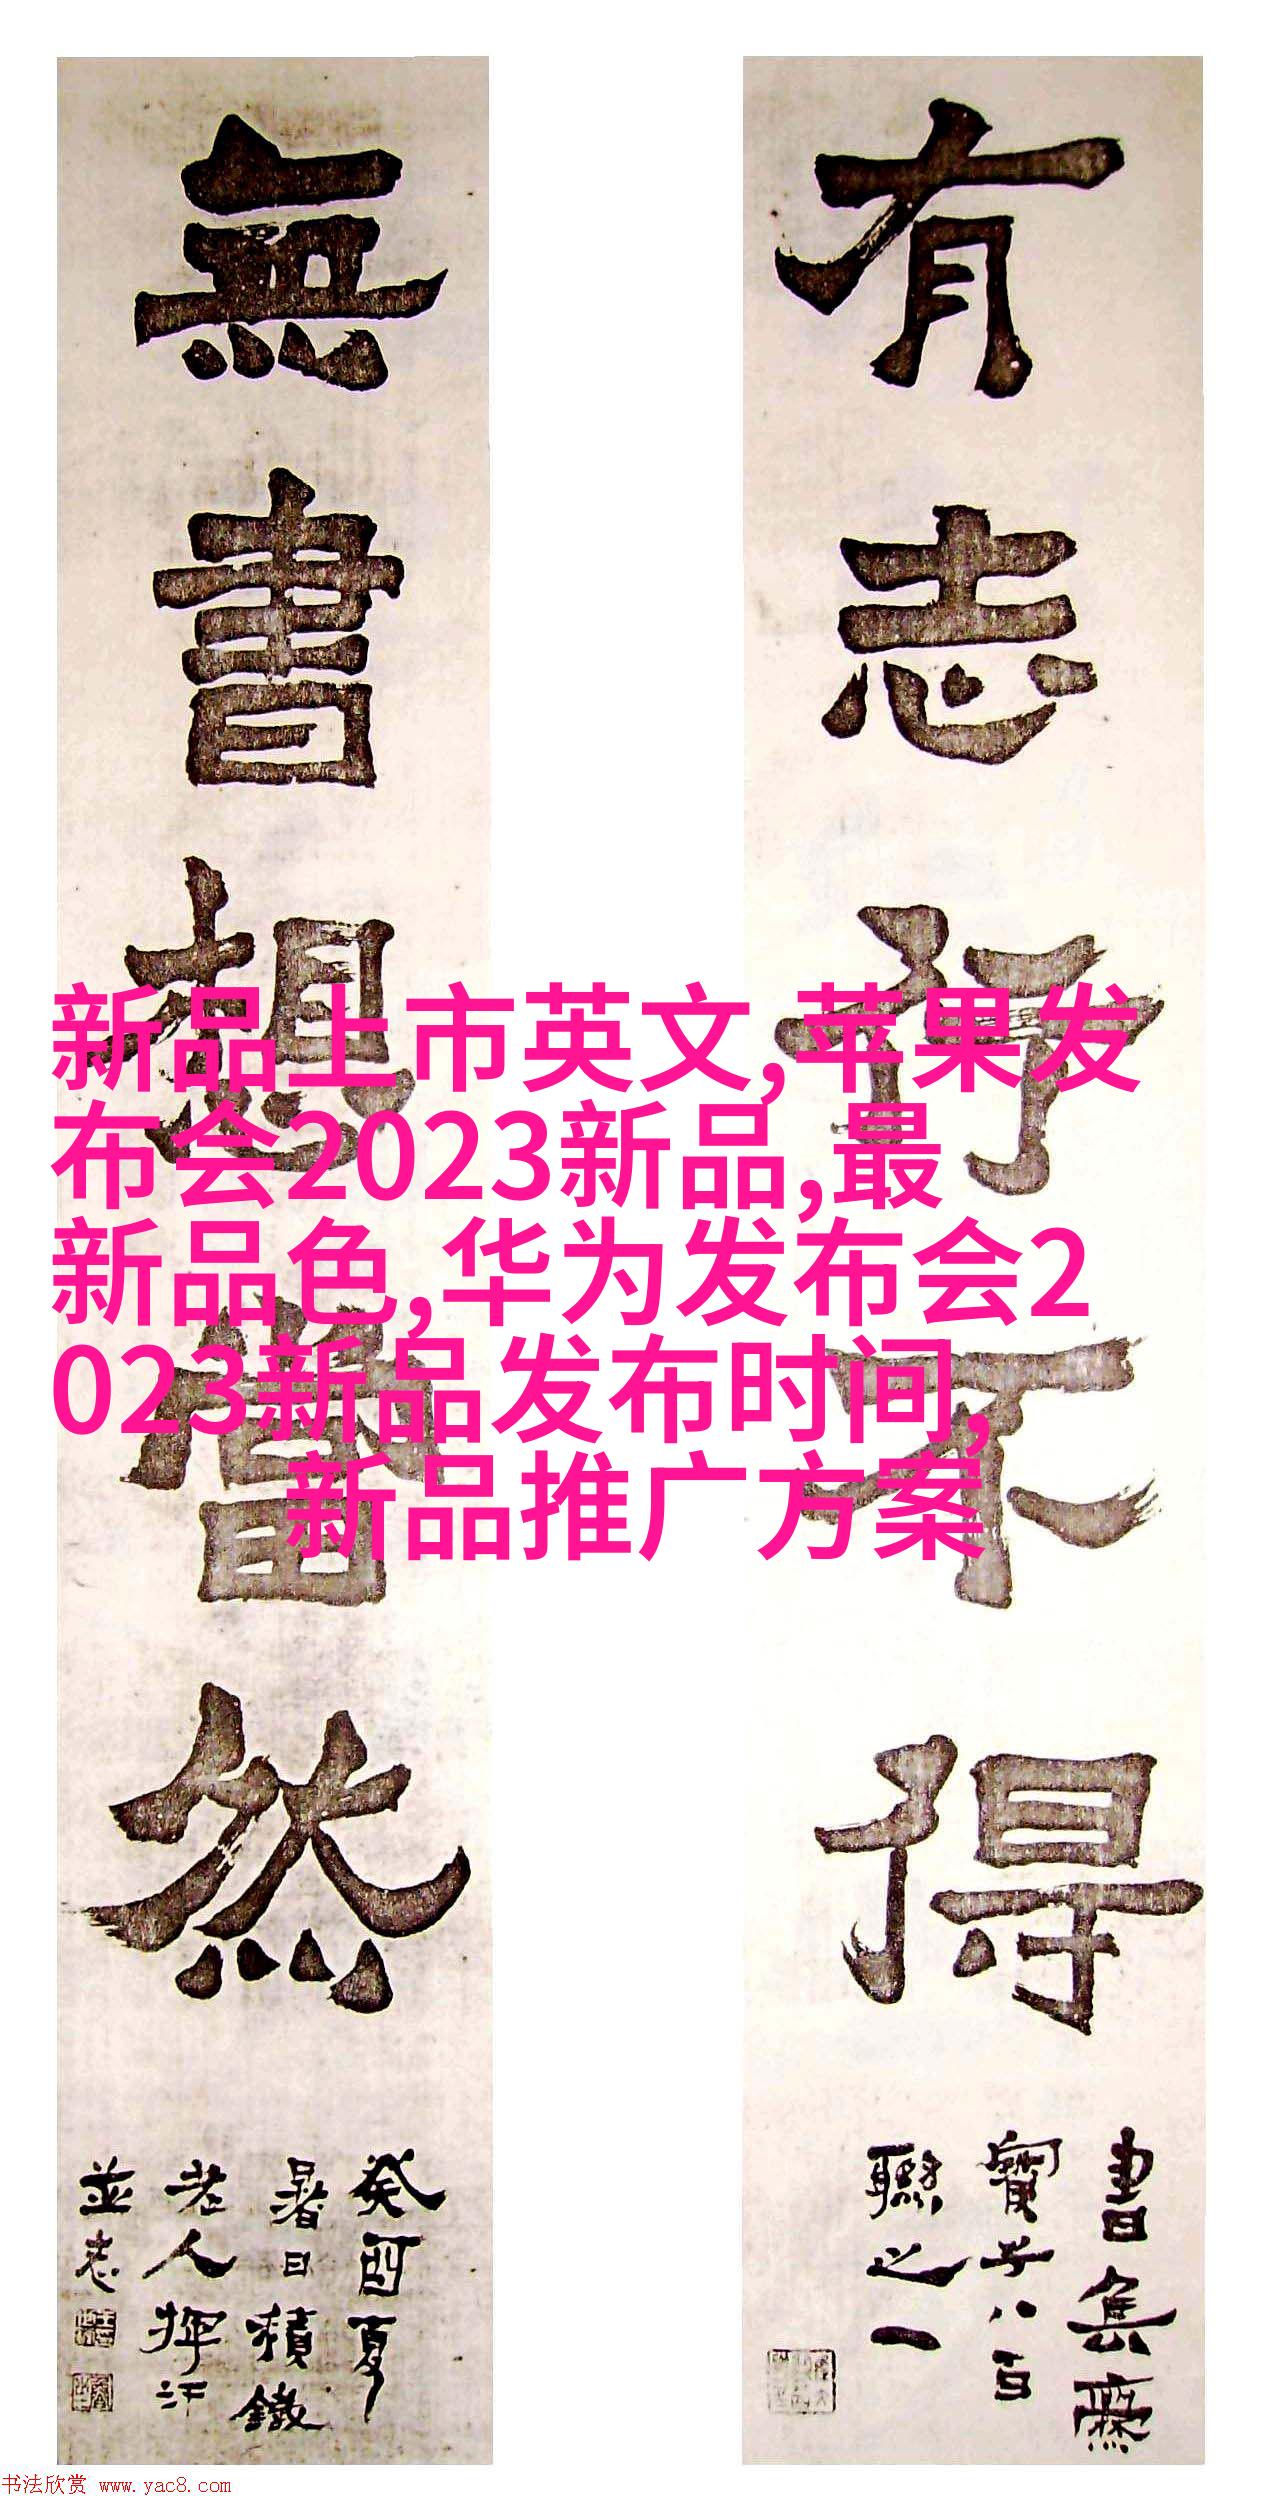 有志行不得
書集爨
寶子八百
聯之一
無書想當然
癸酉夏
暑日積鐵
老人揮汗
並志
新品上市英文,苹果发
布会2023新品,最
新品色,华为发布会2
023新品发布时间,
新品推广方案
书法欣赏 www.yac8.com